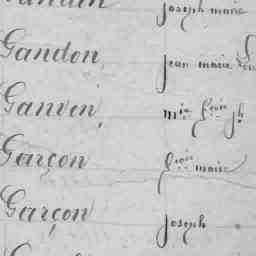 joseph marie
Gandon, jean marie
Ganven, m.ie fçoise jh
Garçon fçoise marie
Garçon joseph